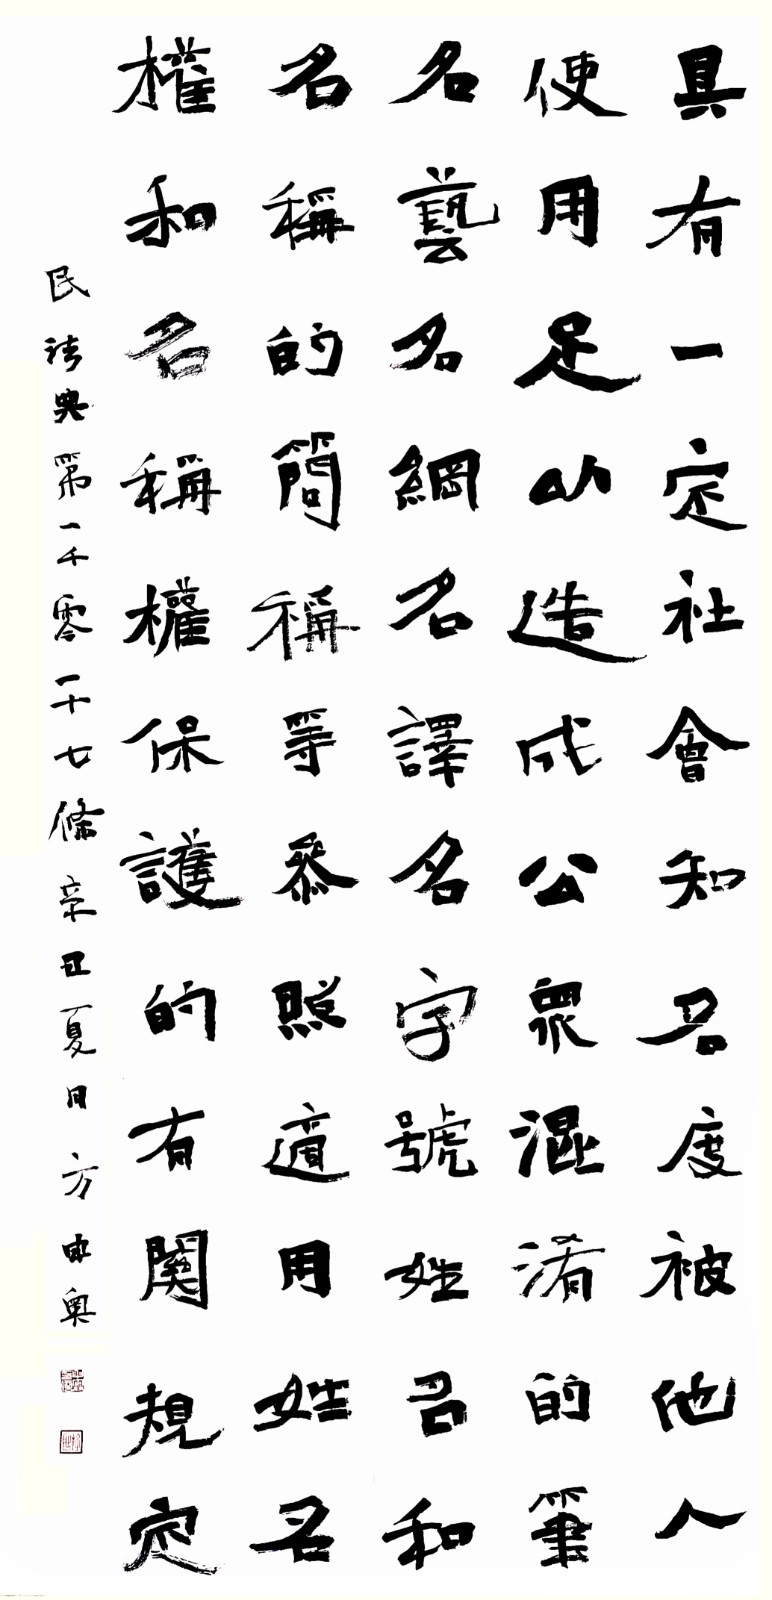 具有一定社會知名度被他人
使用足以造成公眾混淆的筆
名藝名網名譯名字號姓名和
名稱的簡稱等參照適用姓名
權和名稱權保護的有關規定
民法典第一千零一十七條辛丑夏日方